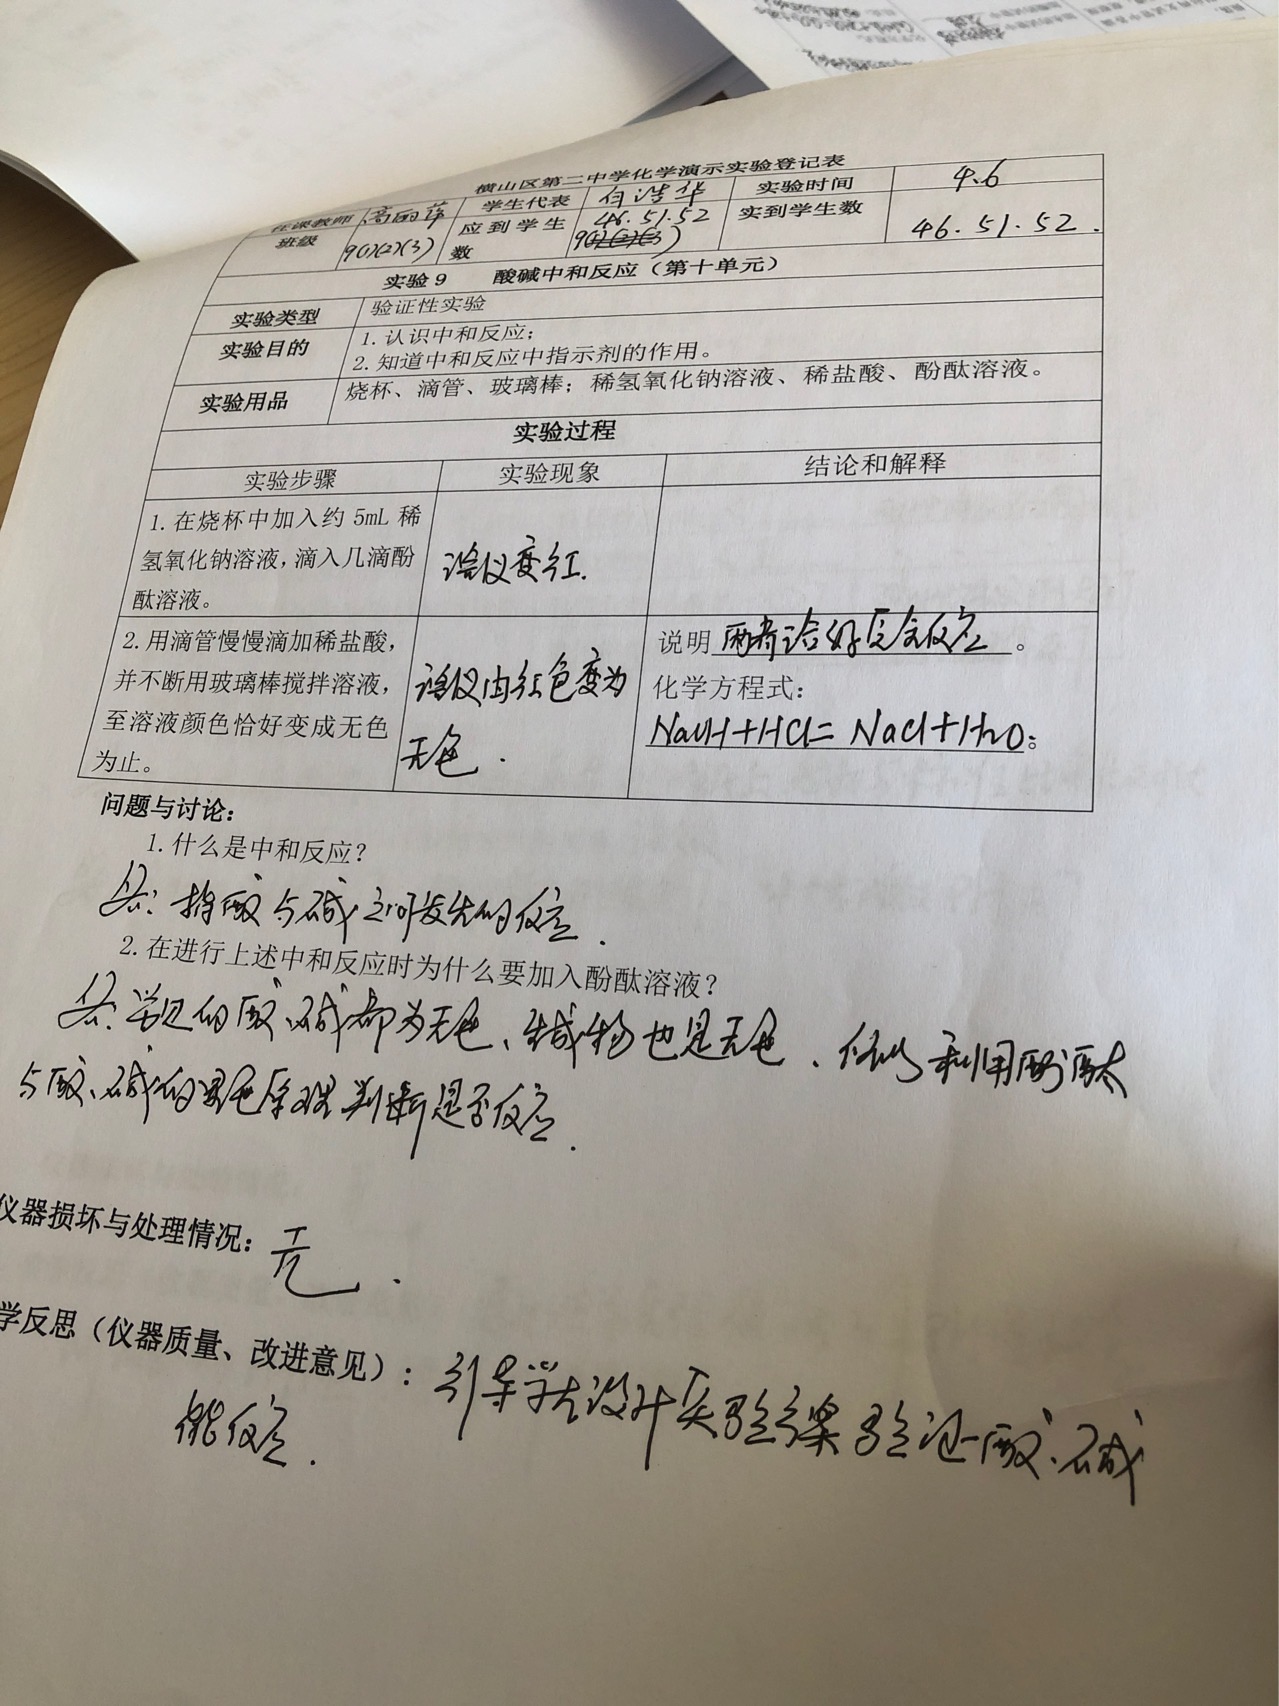 横山区第二中学化学演示实验登记表
任课教师 高丽萍 学生代表 白浩华 实验时间 4.6
班级 9(1)(2)(3) 应到学生数 46.51.52 实到学生数 46.51.52.
实验9 酸碱中和反应（第十单元）
实验类型 验证性实验
实验目的 1.认识中和反应；
2.知道中和反应中指示剂的作用。
实验用品 烧杯、滴管、玻璃棒；稀氢氧化钠溶液、稀盐酸、酚酞溶液。
实验过程
实验步骤 实验现象 结论和解释
1.在烧杯中加入约5mL稀
氢氧化钠溶液，滴入几滴酚
酞溶液。
溶液变红.
2.用滴管慢慢滴加稀盐酸，
并不断用玻璃棒搅拌溶液，
至溶液颜色恰好变成无色
为止。
溶液由红色变为
无色.
说明 两者恰好完全反应 。
化学方程式：
NaOH+HCl=NaCl+H₂O；
问题与讨论：
1.什么是中和反应？
答：指酸与碱之间发生的反应.
2.在进行上述中和反应时为什么要加入酚酞溶液？
答：常见的酸、碱都为无色、生成物也是无色、所以利用酚酞
与酸、碱的变色原理判断是否反应.
仪器损坏与处理情况：无.
学反思（仪器质量、改进意见）：引导学生设计实验方案验证酸、碱
能反应.